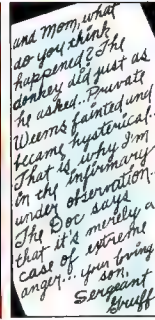 and Mom, what
do you think
happened? The
donkey did just as
he asked.. Private
Weems fainted and
became hysterical..
That is why I'm
in the infirmary
under observation..
The Doc says
that it's merely a
case of extreme
anger... your loving
son,
Sergeant
Gruff